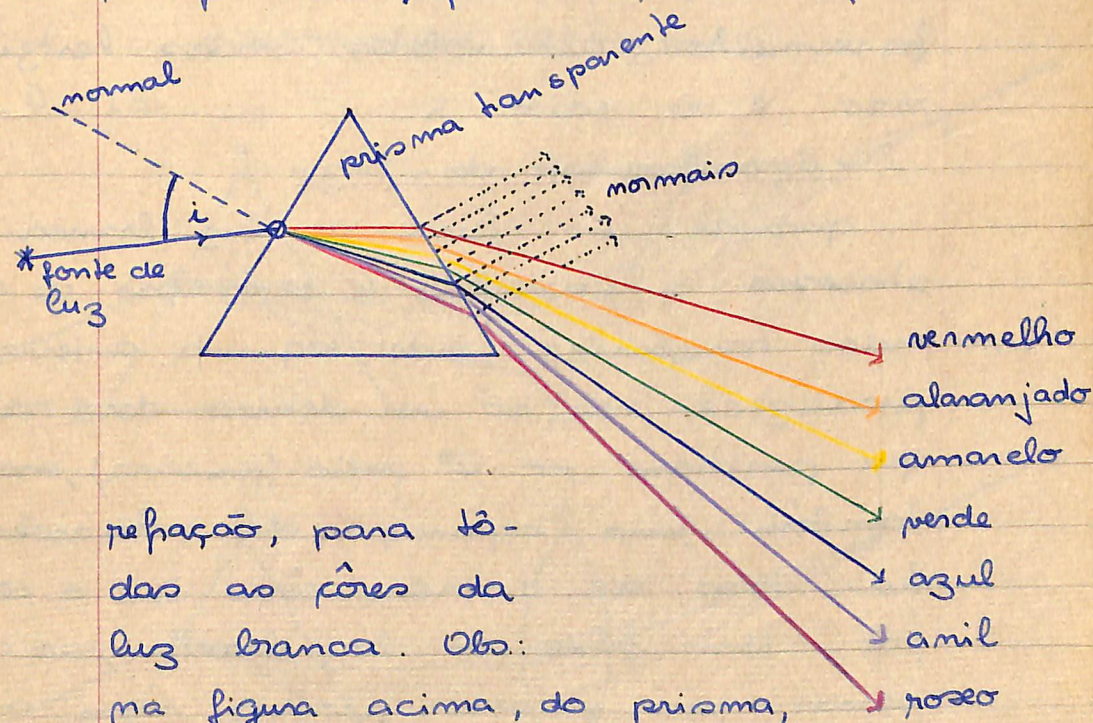 normal
prisma transparente
normais
i
fonte de
luz
vermelho
alaranjado
amarelo
verde
azul
anil
roxo
refração, para tô-
das as côres da
luz branca. Obs.:
na figura acima, do prisma,